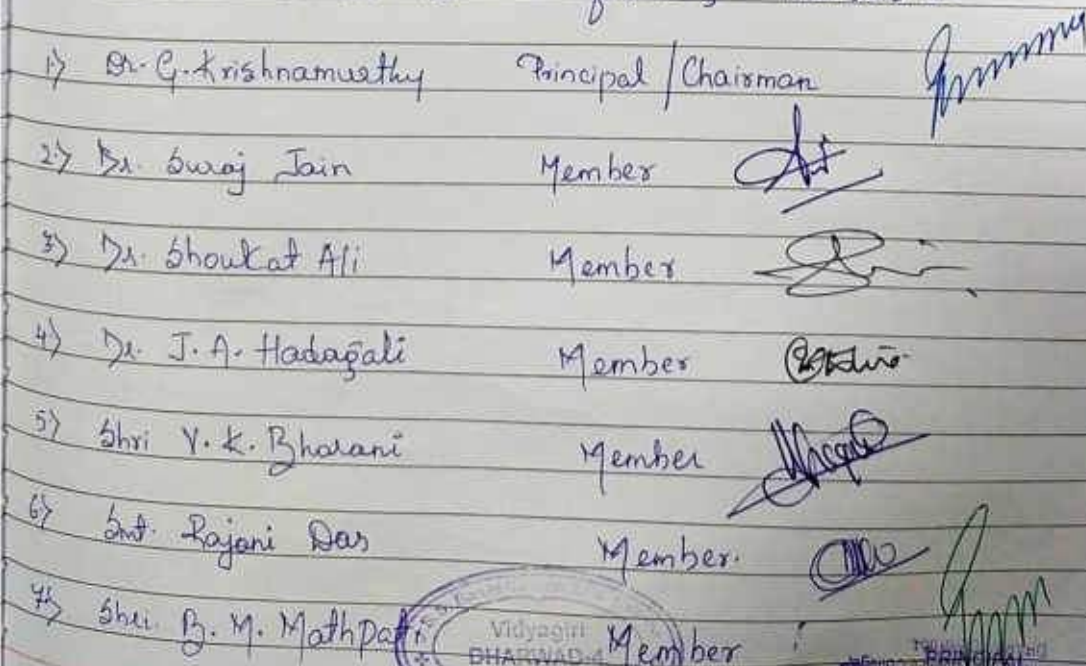 1) Dr. G. Krishnamurthy Principal / Chairman
2) Dr. Suraj Jain Member
3) Dr. Shoukat Ali Member
4) Dr. J. A. Hadagali Member
5) Shri V. K. Bharani Member
6) Smt. Rajani Das Member.
7) Shri. B. M. Mathpati Member
Vidyagiri
DHARWAD-4
PRINCIPAL